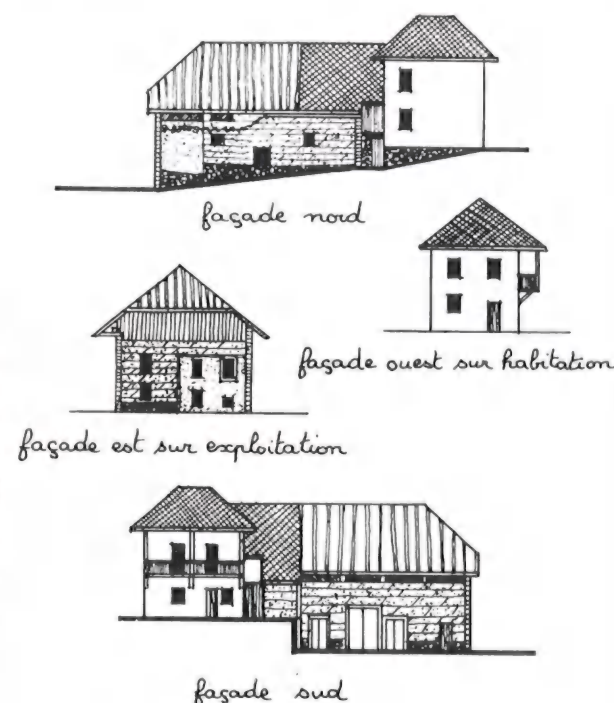 façade nord
façade ouest sur habitation
façade est sur exploitation
façade sud